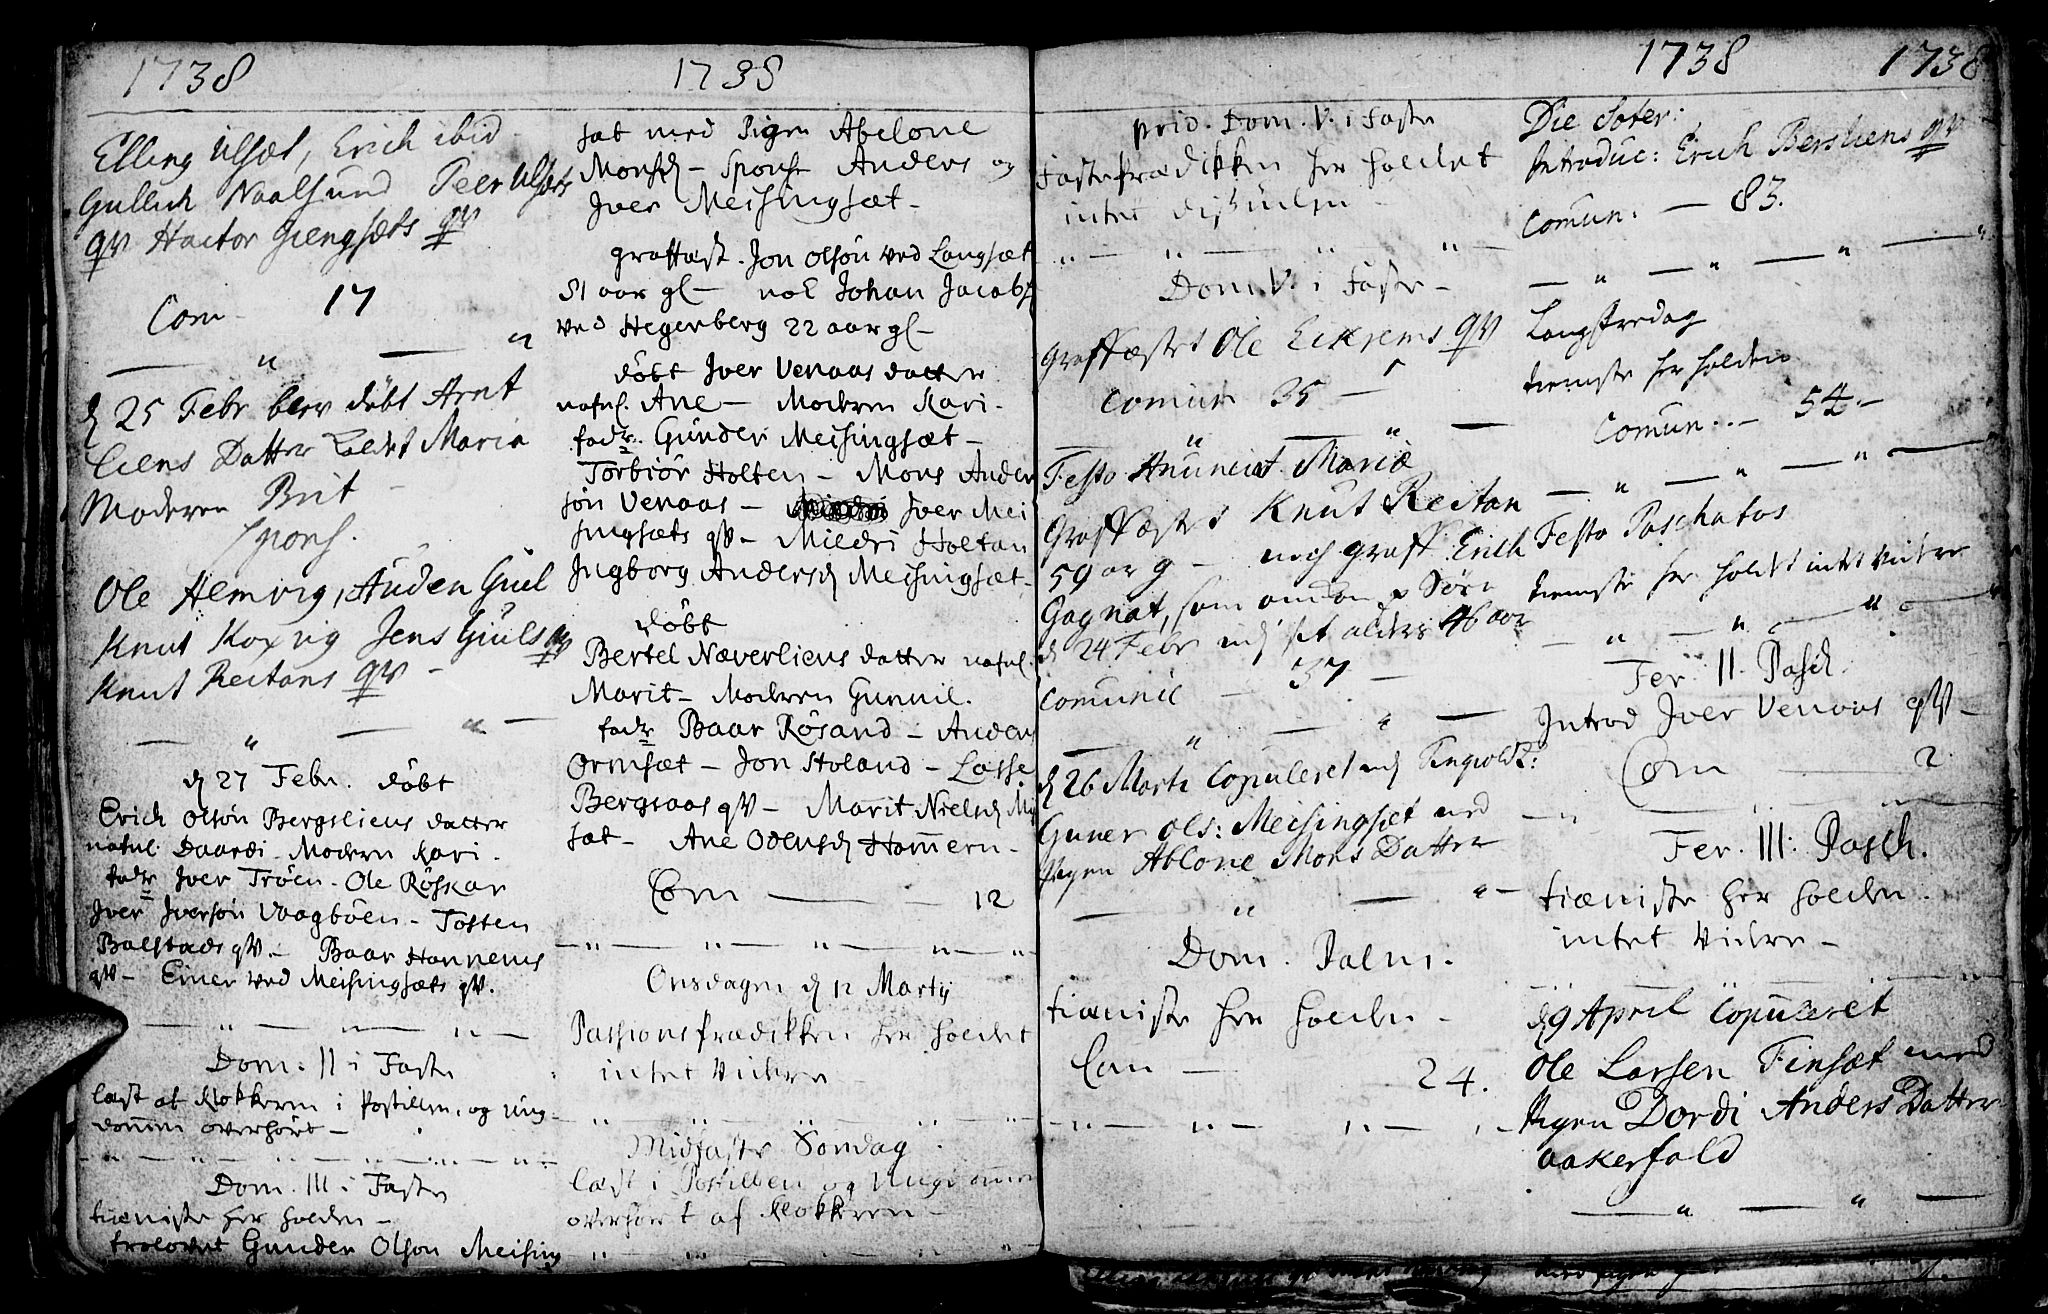 1738
Elling Ulsæt, Erich ibid
Gullich Naalsund Peer Ulsæts
qv Hactor Giengsæts qv
Com - 17
d 25 Febr blev döbt Arnt
Liens Datter kaldet Maria
Moderen Brit -
spons.
Ole Hemvig, Auden Giul
Knut Koxvig Jens Giuls qv
Knut Reitans qv -
d 27 Febr. döbt
Erich Olsön Bergsliens datter
nafnl. Daardi - Moderen Kari -
fadr Iver Tröen - Ole Röskar
Iver Iversön Vaagböen - Tosten
Bolstads qv. - Baar Honnems
qv - Einer ved Meisingsæts qv.
Dom: II i Faste
læst af Klokkeren i Postillen, og ung-
dommen overhört -
Dom. III i Faste
tieniste her holden -
trolovet Gunder Olson Meising
1738
sæt med Pigen Abelone
Monsd - Spons Anders og
Iver Meisingsæt -
graffæst. Jon Olsön ved Langsæt
81 aar gl - nok Johan Jacobs
ved Hegerberg 22 aar gl -
döbt Iver Venaas datter
nafnl. Ane - Moderen Kari -
fadr. Gunder Meisingsæt -
Torbiör Holten - Mons Ander
sön Venaas - Iver Mei
singsæts qv - Mildri Holtan
Ingborg Andersd Meisingsæt -
döbt
Bertel Næverliens datter nafnl.
Marit - Moderen Gunnil.
fadr Baar Rösand - Anders
Ormsæt - Jon Stoland - Lasse
Bergsaas qv - Marit Nielsd
sæt - Ane Odensd Hommern -
Com - 12
Onsdagen d 12 Martij
Passionsprædikken her holdet
intet Videre
Midfaste Söndag
læst i Postillen og Ungdommen
overhört af Klokkeren -
prid. Dom. V. i Faste
Fasteprædikken her holdet
intet
Dom. V. i Faste -
Graffæstet Ole Eikrems qv
Comun 35 -
Festo Anunciat Mariæ
Graffæstet Knut Reitan
59 ar g - noch graff Erich
Gagnat, som
d 24 Febr alders 46 aar
Comunic - 37 -
d 26 Marti Copuleret udj Tingvold:
Guner Ols: Meisingsæt med
Pigen Ablone Mons Datter
Dom. Palm.
tieniste her holden -
Com - 24.
1738 1738
Die
Introduc: Erich Bersliens qv
Comun. - 83.
Langfredag
tieneste her holden
Comun. - 54 -
Festo Paschatos
tieneste her holdt intet videre
Fer. II. Pasch.
Introd Iver Venaas qv -
Com 2
Fer. III: Pasch.
tieniste her holden.
intet Videre -
d 9 April Copuleret
Ole Larsen Finsæt med
Pigen Dordi Anders Datter
Aakerfald